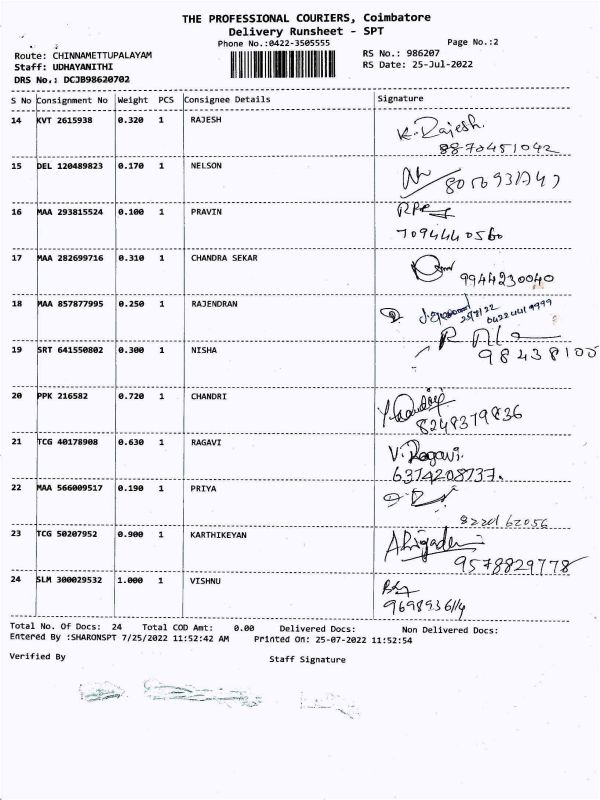 THE PROFESSIONAL COURIERS, Coimbatore
Delivery Runsheet - SPT
Phone No.:0422-3505555
Page No.:2
Route: CHINNAMETTUPALAYAM
RS No.: 986207
Staff: UDHAYANITHI
RS Date: 25-Jul-2022
DRS No.: DCJB98620702
S No Consignment No Weight PCS Consignee Details Signature
14 KVT 2615938 0.320 1 RAJESH K.Rajesh.
8870451042
15 DEL 120489823 0.170 1 NELSON
16 MAA 293815524 0.100 1 PRAVIN
7094440560
17 MAA 282699716 0.310 1 CHANDRA SEKAR
9944230040
18 MAA 857877995 0.250 1 RAJENDRAN
25/7/22
19 SRT 641550802 0.300 1 NISHA
98438100
20 PPK 216582 0.720 1 CHANDRI
8248379836
21 TCG 40178908 0.630 1 RAGAVI V.Ragavi.
6374208737.
22 MAA 566009517 0.190 1 PRIYA
23 TCG 50207952 0.900 1 KARTHIKEYAN
9578829778
24 SLM 300029532 1.000 1 VISHNU
Total No. Of Docs: 24 Total COD Amt: 0.00 Delivered Docs: Non Delivered Docs:
Entered By :SHARONSPT 7/25/2022 11:52:42 AM Printed On: 25-07-2022 11:52:54
Verified By
Staff Signature